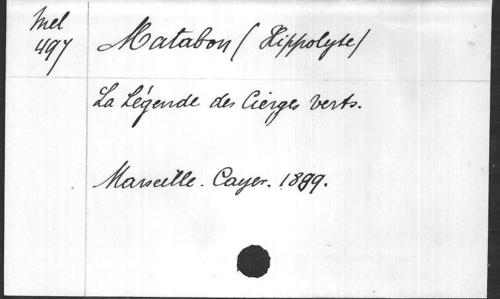 Mel
497
Matabon (Hippolyte)
La Légende des Cierges verts.
Marseille. Cayer. 1899.